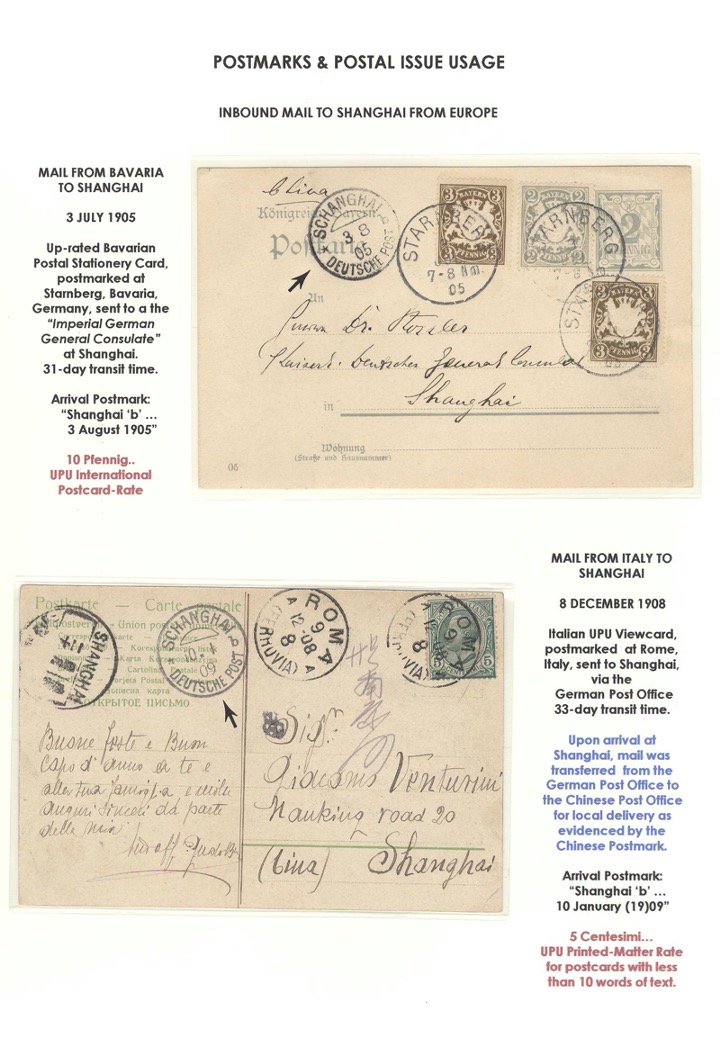 POSTMARKS & POSTAL ISSUE USAGE
INBOUND MAIL TO SHANGHAI FROM EUROPE
MAIL FROM BAVARIA
TO SHANGHAI
3 JULY 1905
Up-rated Bavarian
Postal Stationery Card,
postmarked at
Starnberg, Bavaria,
Germany, sent to a the
“Imperial German
General Consulate”
at Shanghai.
31-day transit time.
Arrival Postmark:
“Shanghai ‘b’ …
3 August 1905”
10 Pfennig..
UPU International
Postcard-Rate
China
Königreich Bayern
Postkarte
SCHANGHAI
3 8
05
DEUTSCHE POST
STARNBERG
7-8 Nm.
05
3 BAYERN 3
3 PFENNIG 3
2 BAYERN 2
2 PFENNIG 2
2
PFENNIG
STARNBERG
7-8
3 PFENNIG 3
An
Herrn Dr.
Kaiserl. Deutsches General Consulat
in Shanghai
Wohnung
(Straße und Hausnummer)
06
MAIL FROM ITALY TO
SHANGHAI
8 DECEMBER 1908
Italian UPU Viewcard,
postmarked at Rome,
Italy, sent to Shanghai,
via the
German Post Office
33-day transit time.
Upon arrival at
Shanghai, mail was
transferred from the
German Post Office to
the Chinese Post Office
for local delivery as
evidenced by the
Chinese Postmark.
Arrival Postmark:
“Shanghai ‘b’ …
10 January (19)09”
5 Centesimi…
UPU Printed-Matter Rate
for postcards with less
than 10 words of text.
Postkarte – Carte postale
Weltpostverein – Union postale
Karta Korespondencyjna
ОТКРЫТОЕ ПИСЬМО
SHANGHAI
SCHANGHAI
10 1
09
DEUTSCHE POST
ROMA
9
12-08
8
(FERROVIA)
ROMA
9
12-08
8
(FERROVIA)
Buone feste e Buon
capo d'anno a te e
alla tua famiglia e mille
auguri sinceri da parte
della mia
Sigr
Giacomo Venturini
Nanking road 20
(Cina) Shanghai